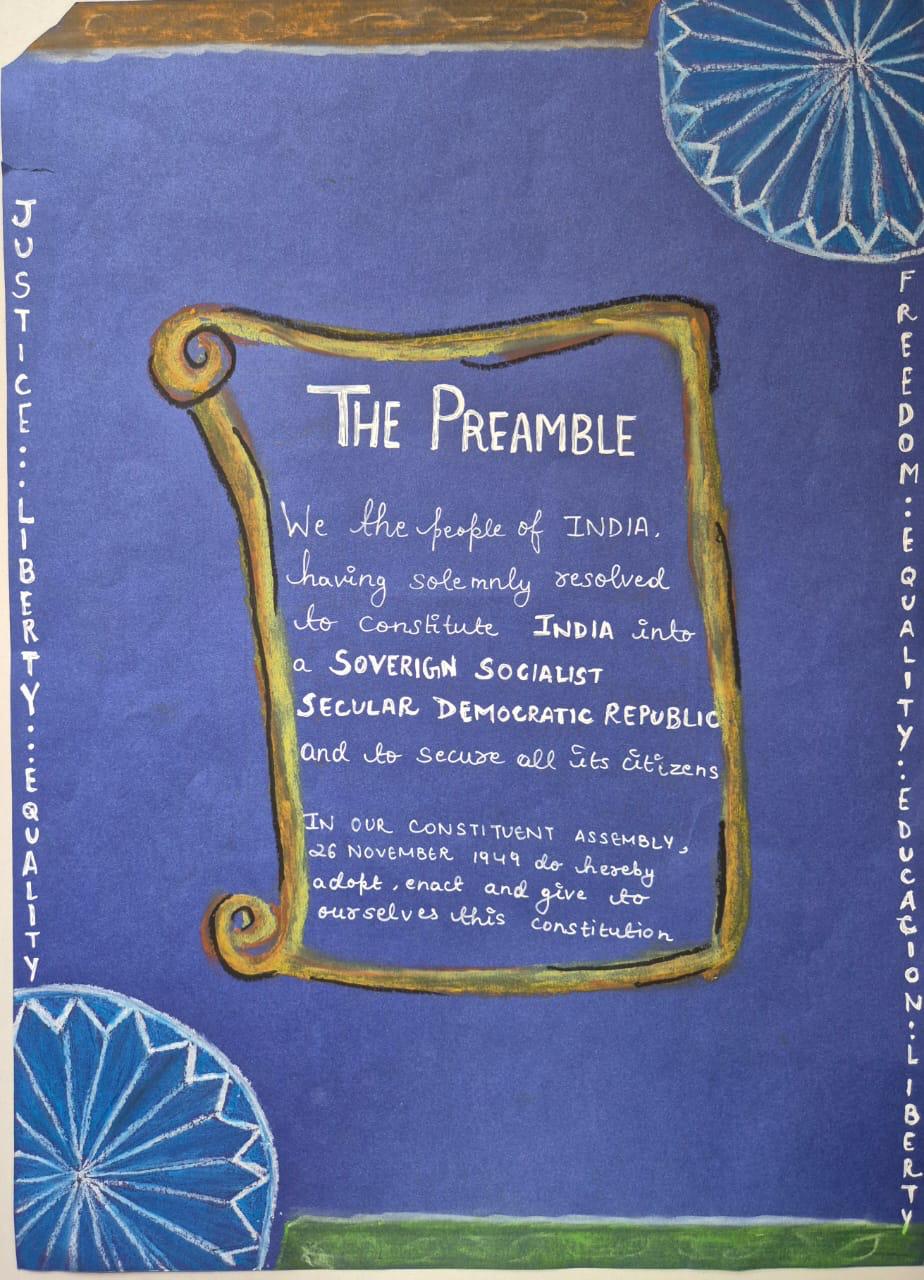 JUSTICE : . : LIBERTY : . : EQUALITY
THE PREAMBLE
We the people of INDIA,
having solemnly resolved
to constitute INDIA into
a SOVERIGN SOCIALIST
SECULAR DEMOCRATIC REPUBLIC
and to secure all its citizens
IN OUR CONSTITUENT ASSEMBLY,
26 NOVEMBER 1949 do hereby
adopt, enact and give to
ourselves this constitution
FREEDOM : EQUALITY : EDUCACION : LIBERTY